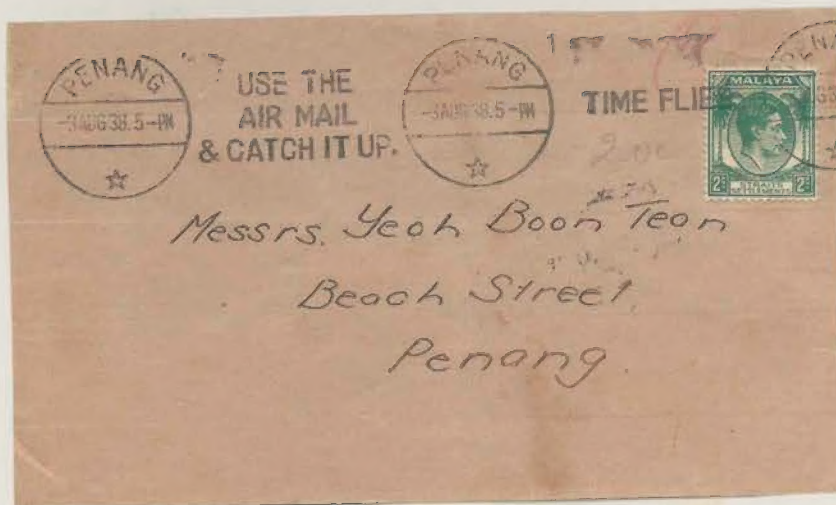 PENANG
-3AUG38.5-PM
USE THE
AIR MAIL
& CATCH IT UP.
PENANG
-3AUG38.5-PM
1
TIME FLIES
PENA
MALAYA
2c
STRAITS
SETTLEMENTS
2c
Messrs. Yeoh Boon Tean
Beach Street,
Penang.